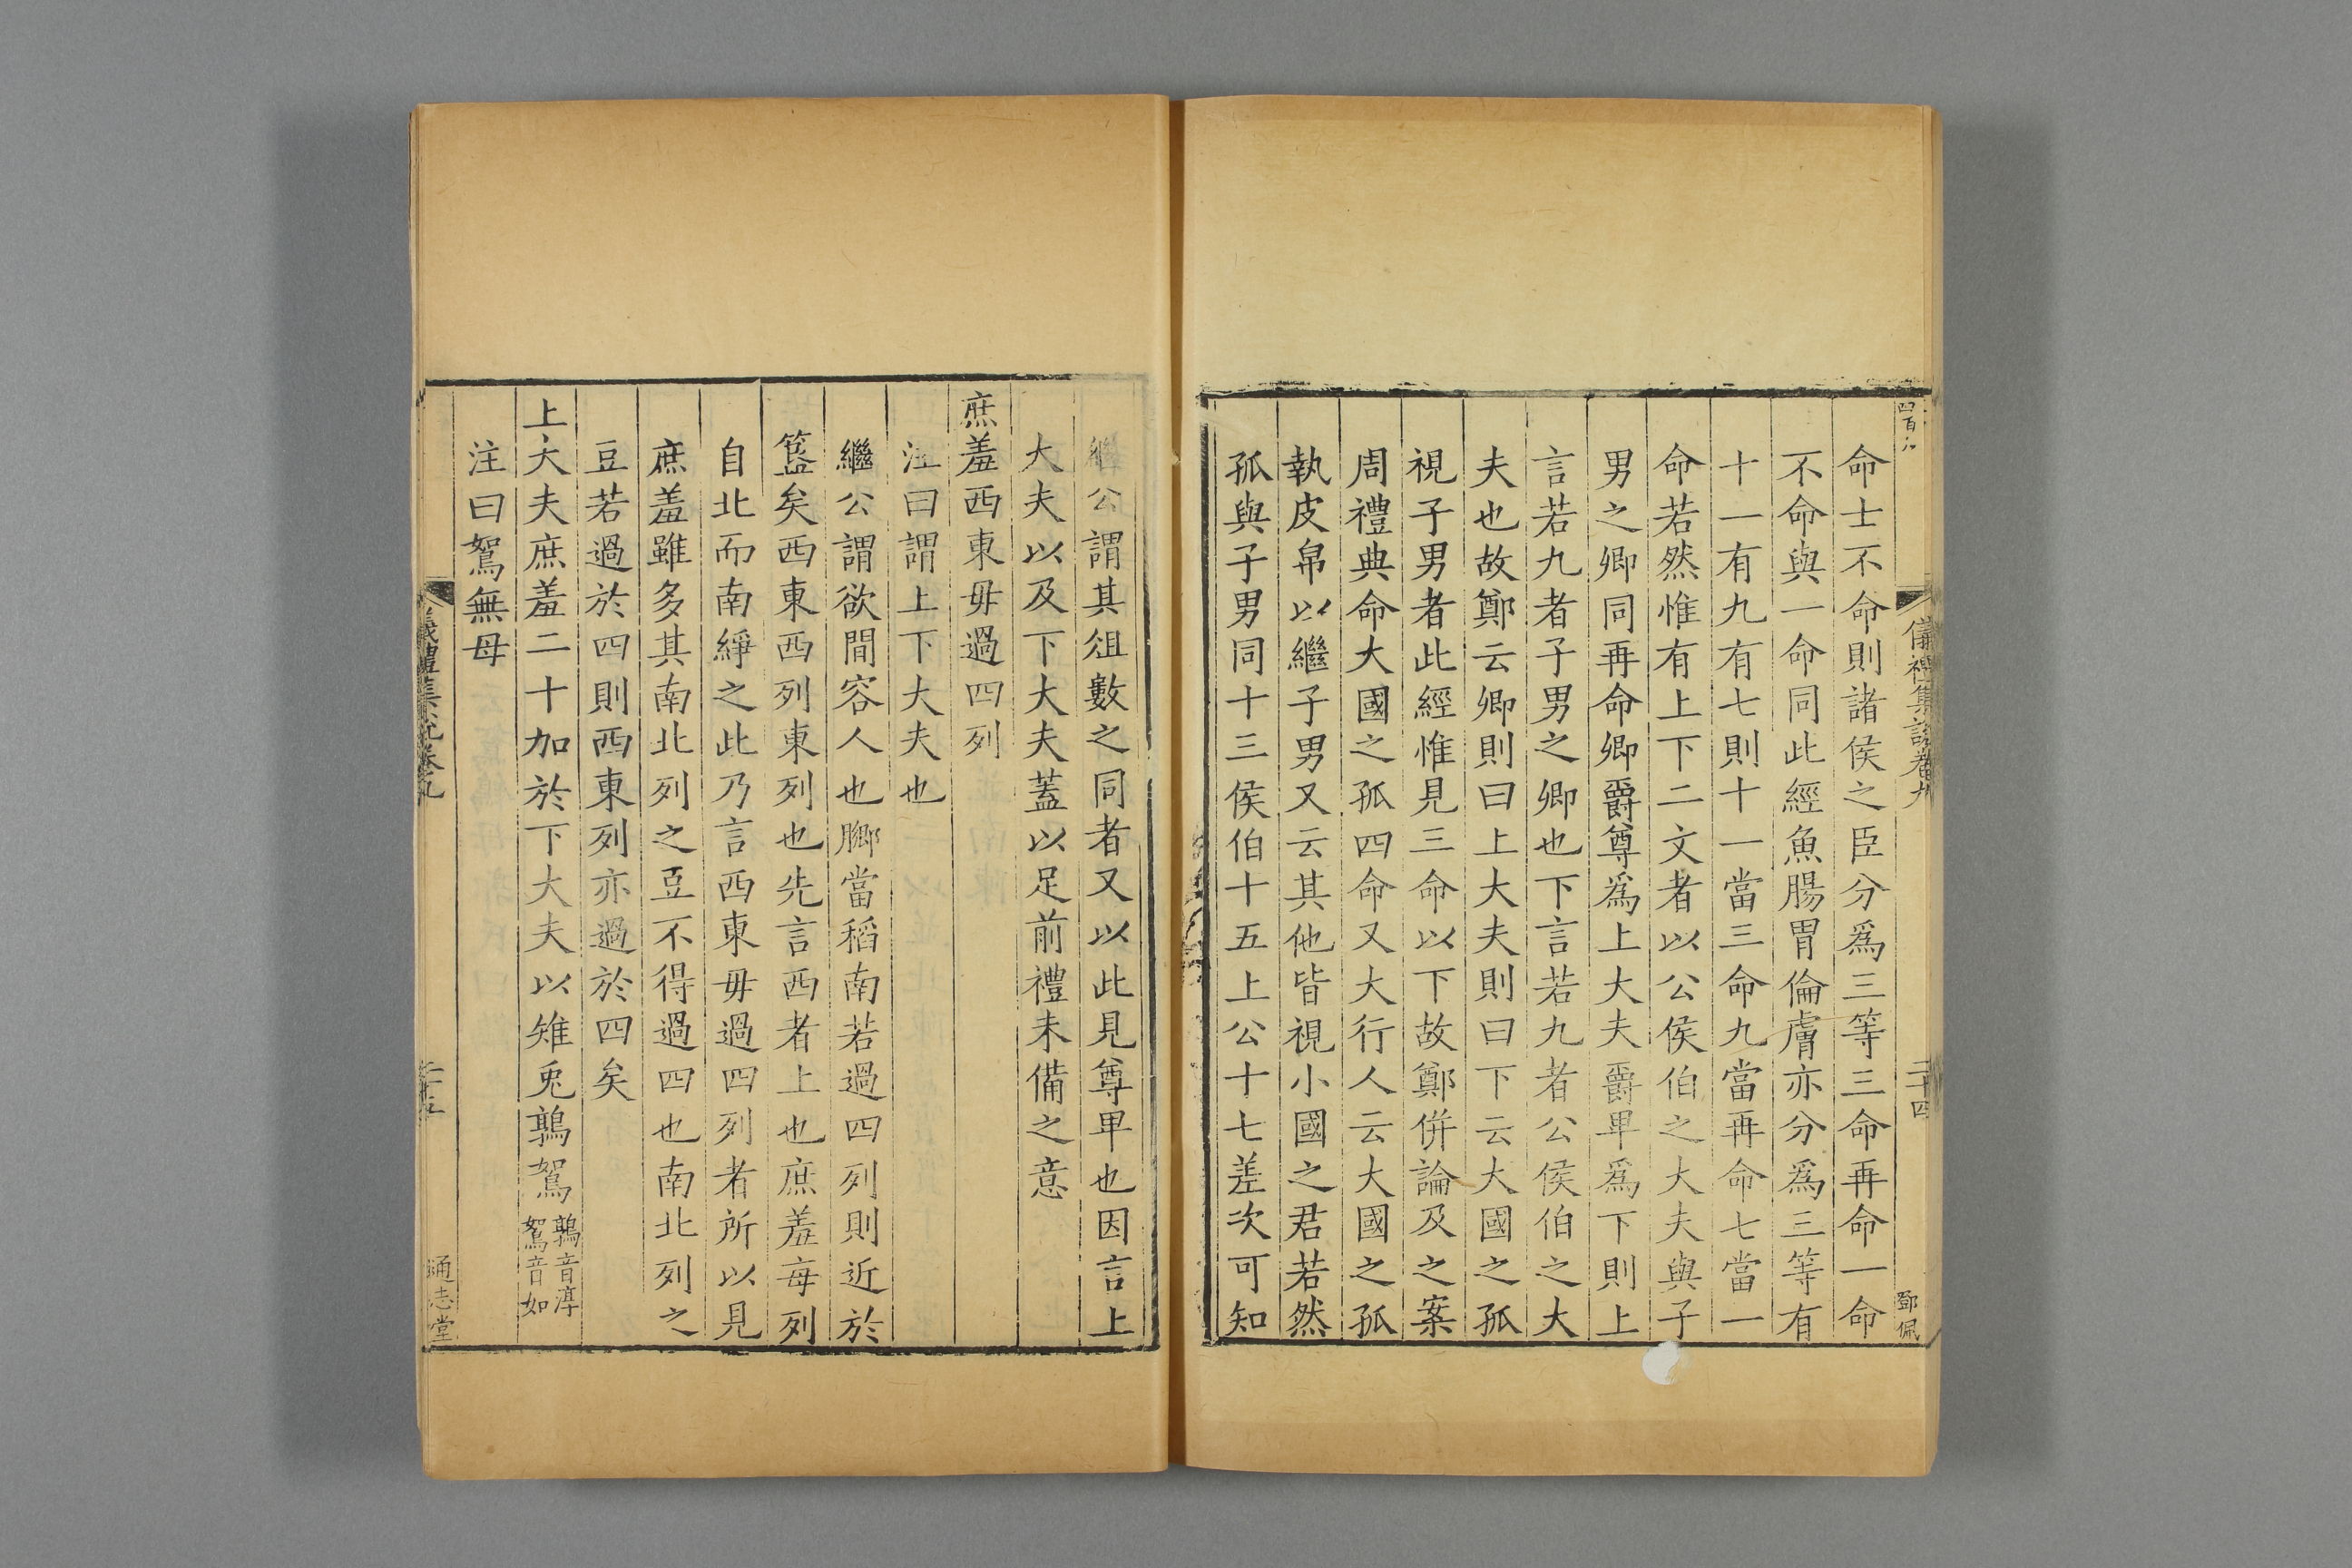 儀禮集說卷九
二十四
鄧佩
命士不命則諸侯之臣分爲三等三命再命一命
不命與一命同此經魚腸胃倫膚亦分爲三等有
十一有九有七則十一當三命九當再命七當一
命若然惟有上下二文者以公侯伯之大夫與子
男之卿同再命卿爵尊爲上大夫爵卑爲下則上
言若九者子男之卿也下言若九者公侯伯之大
夫也故鄭云卿則曰上大夫則曰下云大國之孤
視子男者此經惟見三命以下故鄭併論及之案
周禮典命大國之孤四命又大行人云大國之孤
執皮帛以繼子男又云其他皆視小國之君若然
孤與子男同十三侯伯十五上公十七差次可知
繼公謂其俎數之同者又以此見尊卑也因言上
大夫以及下大夫蓋以足前禮未備之意
庶羞西東毋過四列
注曰謂上下大夫也
繼公謂欲間容人也膷當稻南若過四列則近於
簋矣西東西列東列也先言西者上也庶羞每列
自北而南綪之此乃言西東毋過四列者所以見
庶羞雖多其南北列之豆不得過四也南北列之
豆若過於四則西東列亦過於四矣
上大夫庶羞二十加於下大夫以雉兔鶉鴽
鶉音淳
鴽音如
注曰鴽無母
儀禮集說卷九
二十五
通志堂